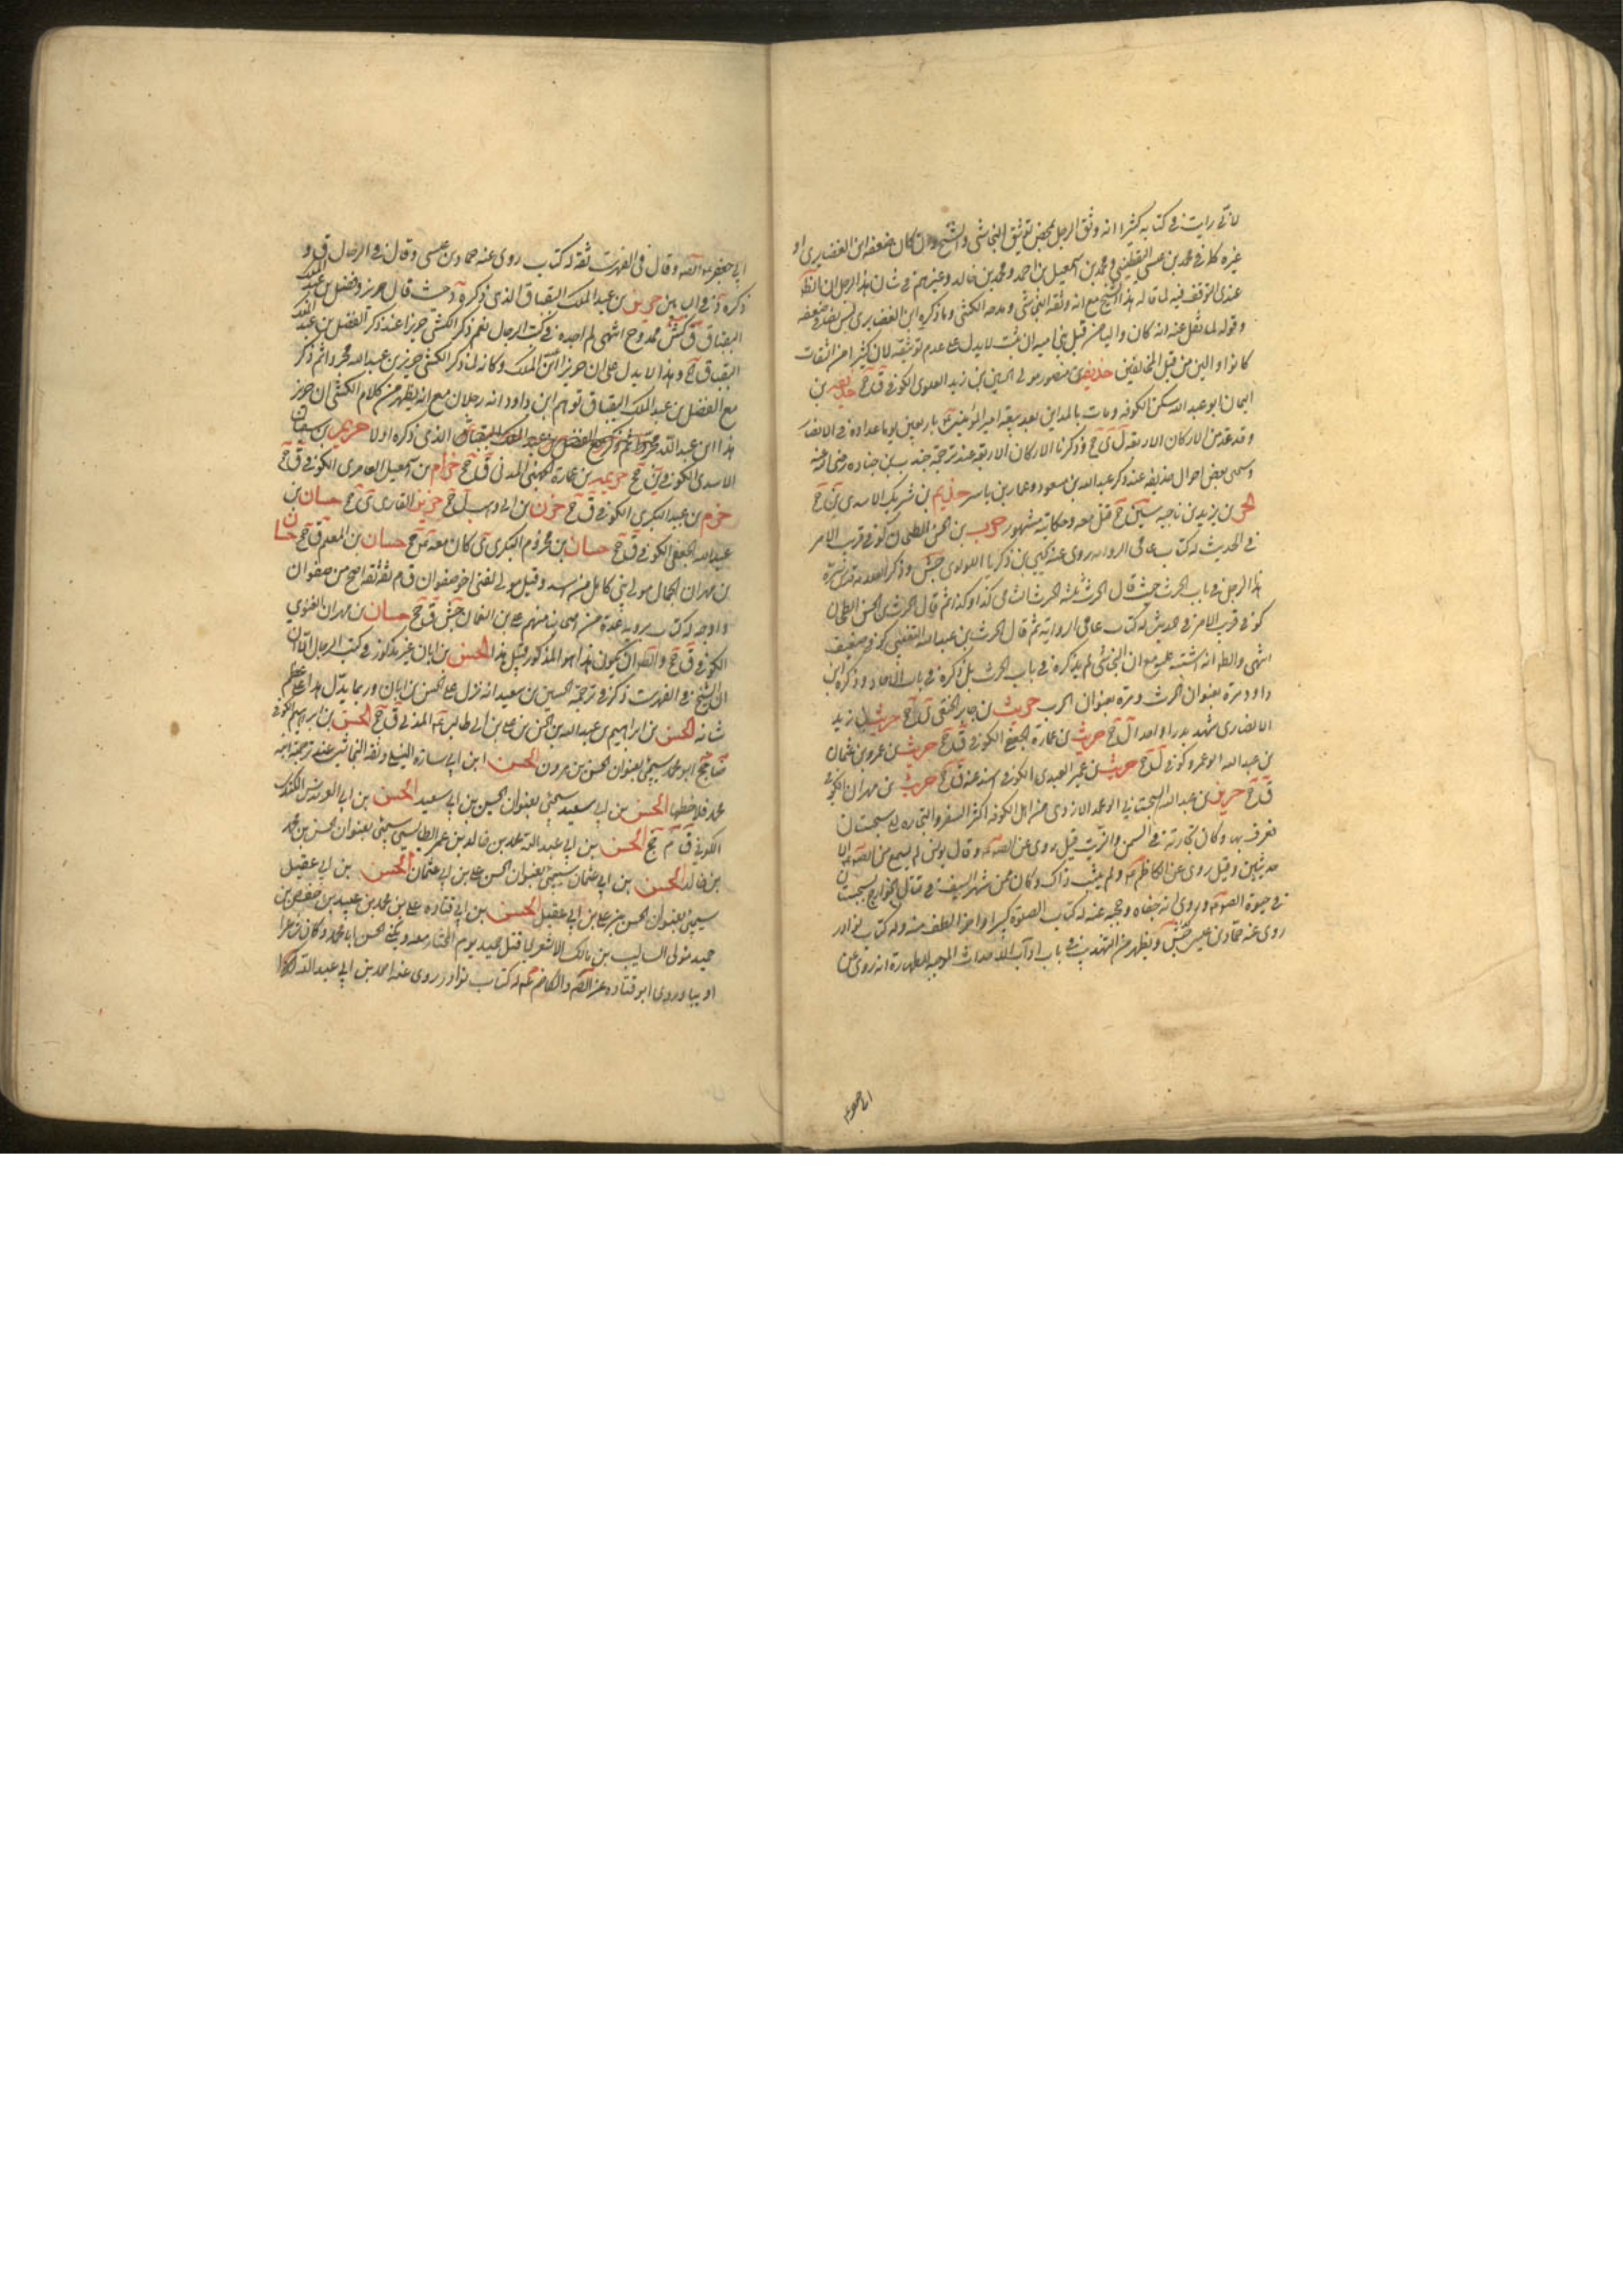 لاني رايت في كتابه كثيرا انه وثق الرجل بمحض توثيق النجاشي والشيخ وان كان ضعفه ابن الغضايري او
غيره كما في محمد بن عيسى اليقطيني ومحمد بن اسمعيل بن احمد ومحمد بن خالد وغيرهم في شان هذا الرجل ان الظ
عندي التوقف فيه لما قاله هذا الشيخ مع انه وثقه النجاشي ومدحه الكشي وما ذكره ابن الغضايري ليس
وقوله لما نقل عنه انه كان واليا من قبل بني اميه ان ثبت لا يدل على عدم توثيقه لان كثيرا من الثقات
كانوا والين من قبل المخالفين حذيفة بن منصور مولى الحسين بن زيد العلوي الكوفي ق جخ حذيفة بن
اليمان ابو عبد الله سكن الكوفه ومات بالمداين بعد بيعة امير المؤمنين باربعين يوما عداده في الانصار
وقد عد من الاركان الاربعة ل ي جخ وذكرنا الاركان الاربعة عند ترجمة جندب بن جناده رضي الله عنه
وسمى بعض احوال حذيفه عند ذكر عبد الله بن مسعود وعمار بن ياسر حذيم بن شريك الاسدي ين جخ
الحر بن يزيد بن ناجيه سين جخ قتل معه وحكايته مشهور حرب بن الحسن الطحان كوفي قريب الامر
في الحديث له كتاب عامي الروايه روى عنه يحيى بن ذكريا اللولوي جش وذكر العلامة قدس سره
هذا الرجل في باب الحرث حيث قال الحرث ثلثه الحرث الشامي كذا وكذا ثم قال الحرث بن الحسن الطحان
كوفي قريب الامر في حديثه له كتاب عامي الرواية ثم قال الحرث بن عبد الله التغلبي كوفي ضعيف
انتهى والظ انه اشتبه عليه مع ان النجاشي لم يذكره في باب الحرث بل ذكره في باب الاحاد وذكره ابن
داود مرة بعنوان الحرث ومرة بعنوان الحرب حريث بن جابر الحنفي ل ي جخ حريث بن زيد
الانصاري شهد بدرا واحدا ل جخ حريث بن عمارة الجعفي الكوفي ق جخ حريث بن عمرو بن عثمان
بن عبد الله ابو عمرو كوفي ل جخ حريث بن عمير العبدي الكوفي اسند عنه ق جخ حريث بن مهران الكوفي
ق جخ حريز بن عبد الله السجستاني ابو محمد الازدي من اهل الكوفه اكثر السفر والتجاره الى سجستان
فعرف بها وكان تجارته في السمن والزيت قيل روى عن الصه وقال يونس لم يسمع من الصه الا
حديثين وقيل روى عن الكاظم ولم يثبت ذاك وكان ممن شهر السيف في قتال الخوارج بسجستان
في حيوة الصه وروى انه جفاه وحجبه عنه له كتاب الصلوة كبير واخر الطف منه وله كتاب نوادر
روى عنه حماد بن عيسى جش ويظهر من التهذيب في باب اداب الاحداث الموجبه للطهارة انه روى عن
ابي جعفر
ابي جعفر عم الصه وقال في الفهرست ثقة له كتاب روى عنه حماد بن عيسى وقال في الرجال ق و
ذكره د في البابين حريز بن عبد الملك البقباق الذي ذكره د حيث قال حريز وفضل بن عبد الملك
البقباق ق كش ممدوح انتهى لم اجده في كتب الرجال نعم ذكر الكشي حريزا عند ذكر الفضل بن عبد الملك
البقباق جخ وهذا لا يدل على ان حريزا ابن الملك وكانه لما ذكر الكشي حريز بن عبد الله مجردا ثم ذكر
مع الفضل بن عبد الملك البقباق توهم ابن داود انه رجلان مع انه يظهر من كلام الكشي ان حريز
هذا ابن عبد الله الذي ذكره اولا حريم بن سفيان
الاسدي الكوفي ق جخ حزيمه بن عمارة الجهني المدني ق جخ حزام بن اسمعيل العامري الكوفي ق جخ
حزم بن عبد البكري الكوفي ق جخ حزن بن ابي وهب ل جخ حزين القاري ي جخ حسان بن
عبد الله الجعفي الكوفي ق جخ حسان بن مخزوم البكري ي كان معه جخ حسان بن المعلم ق جخ حسان
بن مهران الجمال مولى بني كاهل من اسد وقيل مولى لغني اخو صفوان ق م ثقة ثقة اصح من صفوان
واوجه له كتاب يرويه عدة من اصحابنا منهم علي بن النعمان جش ق جخ حسان بن مهران الغنوي
الكوفي ق جخ والظ ان يكون هذا هو المذكور قبل هذا الحسن بن ابان غير مذكور في كتب الرجال الا ان
الشيخ في الفهرست ذكر في ترجمة الحسين بن سعيد انه نزل على الحسن بن ابان وربما يدل هذا على عظم
شانه الحسن بن ابراهيم بن عبد الله بن الحسن بن علي بن ابي طالب المدني ق جخ الحسن بن ابراهيم الكوفي
ضا جخ ابو محمد سيجئ بعنوان الحسن بن هرون الحسن ابن ابي ساره النيلي وثقه النجاشي عند ترجمة ابنه
محمد فلاحظها الحسن بن ابي سعيد سيجئ بعنوان الحسين بن ابي سعيد الحسن بن ابي العرندس الكندي
الكوفي ق م جخ الحسن بن ابي عبد الله محمد بن خالد بن عمر الطيالسي سيجئ بعنوان الحسن بن محمد
بن خالد الحسن بن ابي عثمان سيجئ بعنوان الحسن علي بن ابي عثمان الحسن بن ابي عقيل
سيجئ بعنوان الحسن بن علي بن ابي عقيل الحسن بن ابي قتاده علي بن محمد بن عبيد بن حفص بن
حميد مولى السايب بن مالك الاشعري قتل حميد يوم المختار معه ويكنى الحسن ابا محمد وكان شاعرا
اديبا وروى ابو قتاده عن الصه والكاظم عم له كتاب نوادر روى عنه احمد بن ابي عبد الله